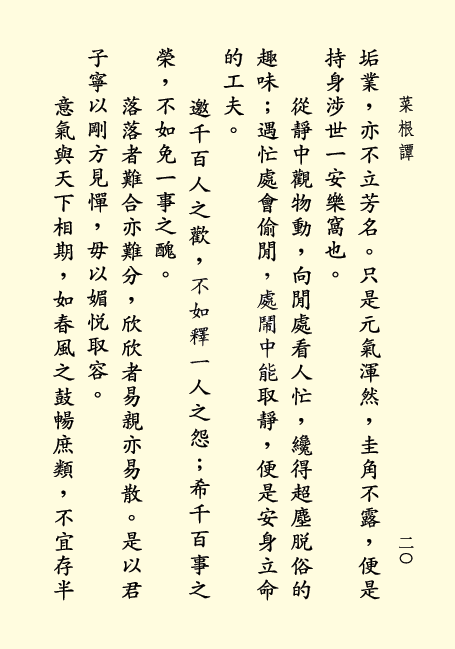 菜根譚
二〇
垢業，亦不立芳名。只是元氣渾然，圭角不露，便是
持身涉世一安樂窩也。
從靜中觀物動，向閒處看人忙，纔得超塵脫俗的
趣味；遇忙處會偷閒，處鬧中能取靜，便是安身立命
的工夫。
邀千百人之歡，不如釋一人之怨；希千百事之
榮，不如免一事之醜。
落落者難合亦難分，欣欣者易親亦易散。是以君
子寧以剛方見憚，毋以媚悅取容。
意氣與天下相期，如春風之鼓暢庶類，不宜存半